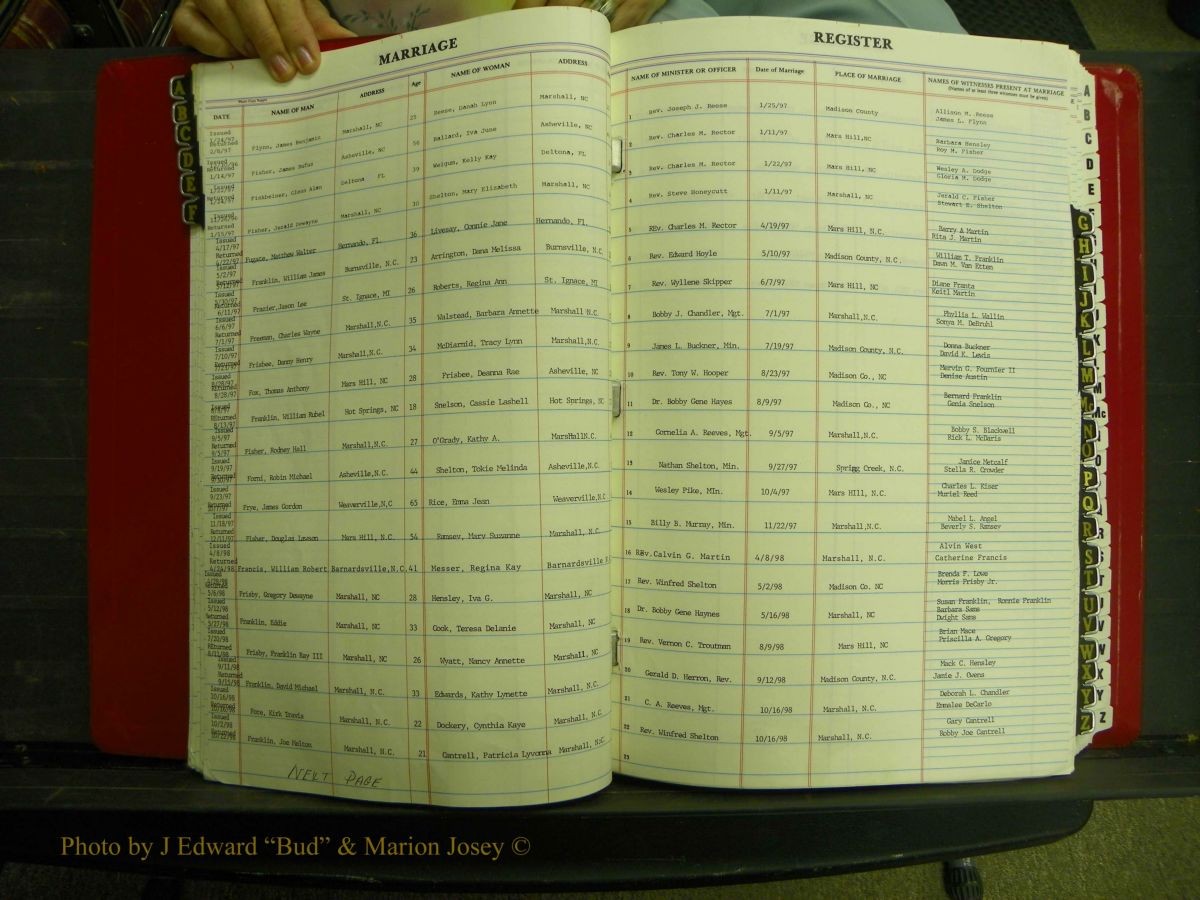 MARRIAGE
DATE NAME OF MAN ADDRESS Age NAME OF WOMAN ADDRESS
Issued
Returned 2/8/97 Flynn, James Benjamin Marshall, NC 25 Reese, Danah Lynn Marshall, NC
Issued
1/14/97 Fisher, James Rufus Asheville, NC 56 Ballard, Iva June Asheville, NC
Issued
Returned Finkbeiner, Glenn Alan Deltona FL 39 Weigum, Kelly Kay Deltona, FL
Issued
Returned
1/15/97 Fisher, Jerald Dewayne Marshall, NC 30 Shelton, Mary Elizabeth Marshall, NC
Issued
4/17/97
Returned
4/22/97 Fugate, Matthew Walter Hernando, Fl. 36 Livesay, Connie Jane Hernando, Fl.
Issued
5/2/97
Returned
Franklin, William James Burnsville, N.C. 23 Arrington, Dana Melissa Burnsville, N.C.
Issued
Returned
6/11/97 Frazier, Jason Lee St. Ignace, MI 26 Roberts, Regina Ann St. Ignace, MI
Issued
6/6/97
Returned
7/1/97 Freeman, Charles Wayne Marshall,N.C. 35 Walstead, Barbara Annette Marshall N.C.
Issued
7/10/97
Returned
Frisbee, Danny Henry Marshall,N.C. 34 McDiarmid, Tracy Lynn Marshall,N.C.
Issued
8/28/97 Fox, Thomas Anthony Mars Hill, NC 28 Frisbee, Deanna Rae Asheville, NC
Issued
Returned
8/13/97 Franklin, William Rubel Hot Springs, NC 18 Snelson, Cassie Lashell Hot Springs, NC
Issued
9/5/97
Returned
9/5/97 Fisher, Rodney Hall Marshall,N.C. 27 O'Grady, Kathy A. Marshall N.C.
Issued
9/19/97
Returned
Forni, Robin Michael Asheville,N.C. 44 Shelton, Tokie Melinda Asheville,N.C.
Issued
9/23/97
Returned
Frye, James Gordon Weaverville,N.C 65 Rice, Emma Jean Weaverville,N.C
Issued
11/18/97
Returned
12/11/97 Fisher, Douglas Lawson Mars Hill, N.C. 54 Ramsey, Mary Suzanne Marshall, N.C.
Issued
4/8/98
Returned
4/24/98 Francis, William Robert Barnardsville,N.C. 41 Messer, Regina Kay Barnardsville
Issued
Returned
5/6/98 Frisby, Gregory Dewayne Marshall, NC 28 Hensley, Iva G. Marshall, NC
Issued
5/12/98
Returned
5/27/98 Franklin, Eddie Marshall, NC 33 Cook, Teresa Delanie Marshall, NC
Issued
7/20/98
Returned
8/11/98 Frisby, Franklin Ray III Marshall, NC 26 Wyatt, Nancy Annette Marshall, NC
Issued
9/11/98
Returned
9/15/98 Franklin, David Michael Marshall, N.C. 33 Edwards, Kathy Lynette Marshall, N.C.
Issued
10/16/98
Returned
Foxe, Kirk Travis Marshall, N.C. 22 Dockery, Cynthia Kaye Marshall, N.C.
Issued
10/2/98
Returned
Franklin, Joe Helton Marshall, N.C. 21 Cantrell, Patricia Lyvonna Marshall, N.C.
NEXT PAGE
REGISTER
NAME OF MINISTER OR OFFICER Date of Marriage PLACE OF MARRIAGE NAMES OF WITNESSES PRESENT AT MARRIAGE
(Names of at least three witnesses must be given)
1 Rev. Joseph J. Reese 1/25/97 Madison County Allison M. Reese
James L. Flynn
2 Rev. Charles M. Rector 1/11/97 Mars Hill,NC Barbara Hensley
Roy M. Fisher
3 Rev. Charles M. Rector 1/22/97 Mars Hill, NC Wesley A. Dodge
Gloria M. Dodge
4 Rev. Steve Honeycutt 1/11/97 Marshall, NC Jerald C. Fisher
Stewart E. Shelton
5 REv. Charles M. Rector 4/19/97 Mars Hill, N.C. Barry A Martin
Rita J. Martin
6 Rev. Edward Hoyle 5/10/97 Madison County, N.C. William T. Franklin
Dawn M. Van Etten
7 Rev. Wyllene Skipper 6/7/97 Mars Hill, NC Diane Franta
Keitl Martin
8 Bobby J. Chandler, Mgt. 7/1/97 Marshall,N.C. Phyllis L. Wallin
Sonya M. DeBruhl
9 James L. Buckner, Min. 7/19/97 Madison County, N.C. Donna Buckner
David K. Lewis
10 Rev. Tony W. Hooper 8/23/97 Madison Co., NC Marvin G. Fournier II
Denise Austin
11 Dr. Bobby Gene Hayes 8/9/97 Madison Co., NC Bernard Franklin
Genia Snelson
12 Cornelia A. Reeves, Mgt. 9/5/97 Marshall,N.C. Bobby S. Blackwell
Rick L. McDaris
13 Nathan Shelton, Min. 9/27/97 Sprigg Creek, N.C. Janice Metcalf
Stella R. Crowder
14 Wesley Pike, MIn. 10/4/97 Mars HIll, N.C. Charles L. Kiser
Muriel Reed
15 Billy B. Murray, Min. 11/22/97 Marshall,N.C. Mabel L. Angel
Beverly S. Ramsey
16 REv.Calvin G. Martin 4/8/98 Marshall, N.C. Alvin West
Catherine Francis
17 Rev. Winfred Shelton 5/2/98 Madison Co. NC Brenda F. Lowe
Morris Frisby Jr.
18 Dr. Bobby Gene Haynes 5/16/98 Marshall, NC Susan Franklin, Ronnie Franklin
Barbara Sams
Dwight Sams
19 Rev. Vernon C. Troutman 8/9/98 Mars Hill, NC Brian Mace
Priscilla A. Gregory
20 Gerald D. Herron, Rev. 9/12/98 Madison County, N.C. Mack C. Hensley
Jamie J. Owens
21 C. A. Reeves, Mgt. 10/16/98 Marshall, N.C. Deborah L. Chandler
Ennalee DeCarlo
22 Rev. Winfred Shelton 10/16/98 Marshall, N.C. Gary Cantrell
Bobby Joe Cantrell
23
A
B
C
D
E
F
A
B
C
D
E
G
H
I
J
K
L
M
Mc
N
O
P
Q
R
S
T
U
V
W
X
Y
Z
Photo by J Edward “Bud” & Marion Josey ©